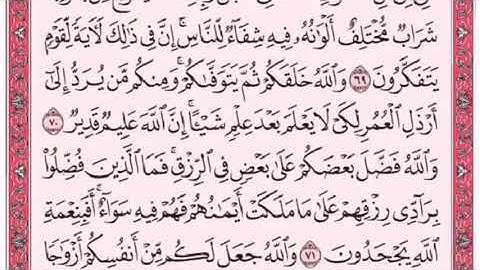 شَرَابٌ مُّخْتَلِفٌ أَلْوَٰنُهُۥ فِيهِ شِفَآءٌ لِّلنَّاسِ ۗ إِنَّ فِى ذَٰلِكَ لَءَايَةً لِّقَوْمٍ
يَتَفَكَّرُونَ ٦٩ وَٱللَّهُ خَلَقَكُمْ ثُمَّ يَتَوَفَّىٰكُمْ ۚ وَمِنكُم مَّن يُرَدُّ إِلَىٰٓ
أَرْذَلِ ٱلْعُمُرِ لِكَىْ لَا يَعْلَمَ بَعْدَ عِلْمٍ شَيْـًٔا ۚ إِنَّ ٱللَّهَ عَلِيمٌ قَدِيرٌ ٧٠
وَٱللَّهُ فَضَّلَ بَعْضَكُمْ عَلَىٰ بَعْضٍ فِى ٱلرِّزْقِ ۚ فَمَا ٱلَّذِينَ فُضِّلُوا۟
بِرَآدِّى رِزْقِهِمْ عَلَىٰ مَا مَلَكَتْ أَيْمَٰنُهُمْ فَهُمْ فِيهِ سَوَآءٌ ۚ أَفَبِنِعْمَةِ
ٱللَّهِ يَجْحَدُونَ ٧١ وَٱللَّهُ جَعَلَ لَكُم مِّنْ أَنفُسِكُمْ أَزْوَٰجًا